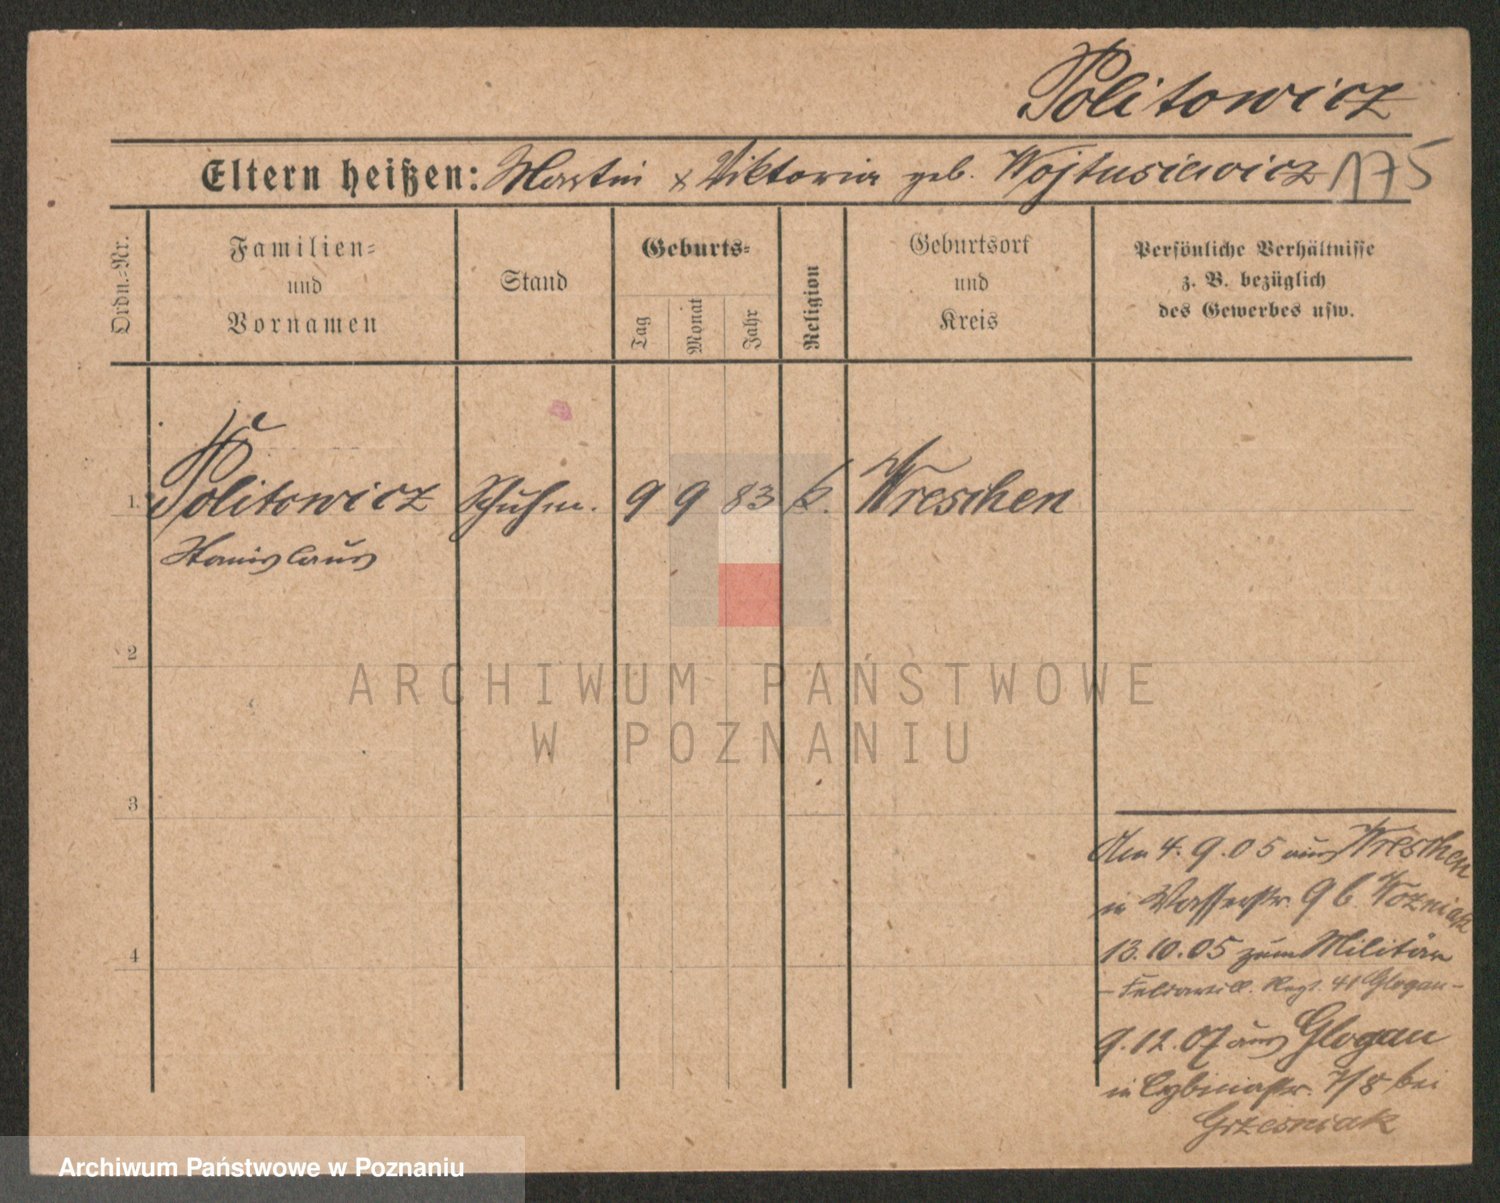 Politowicz
Eltern heißen: Martin & Viktoria geb. Wojtusiewicz 175
Ordn.-Nr.
Familien-
und
Vornamen
Stand
Geburts-
Tag
Monat
Jahr
Religion
Geburtsort
und
Kreis
Persönliche Verhältnisse
z. B. bezüglich
des Gewerbes usw.
1. Politowicz Schuhm. 9 9 83 k. Wreschen
Stanislaus
2
3
4
Am 4. 9. 05 aus Wreschen
in Wasserstr. 9 b. Wozniak
13. 10. 05 zum Militär
– Feldartill. Regt. 41 Glogau –
9. 12. 07 aus Glogau
in Cybinastr. 7/8 bei
Grzesniak
ARCHIWUM PAŃSTWOWE
W POZNANIU
Archiwum Państwowe w Poznaniu